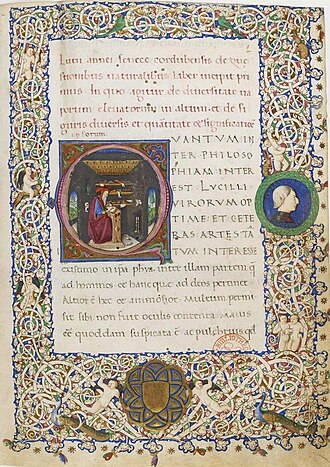 Lutii annei Senece cordubensis de que
stionibus naturalibus Liber incipit pri
mus. In quo agitur de diversitate va
porum elevatorum in altum et de fi
guris diversis et quantitate et significatio
ipsorum
QVANTVM IN
TER PHILOSO
PHIAM INTER
EST LVCILLI
VIRORVM OP
TIME ET CETE
RAS ARTES TA
TVM INTERESSE
in ipa inter illam partem q
ad homines et hanc que ad deos pertinet:
Altior hec et animosior. Multum permi
sit sibi non fuit oculis contenta Maius
ee quoddam suspicata et ac pulchrius qd